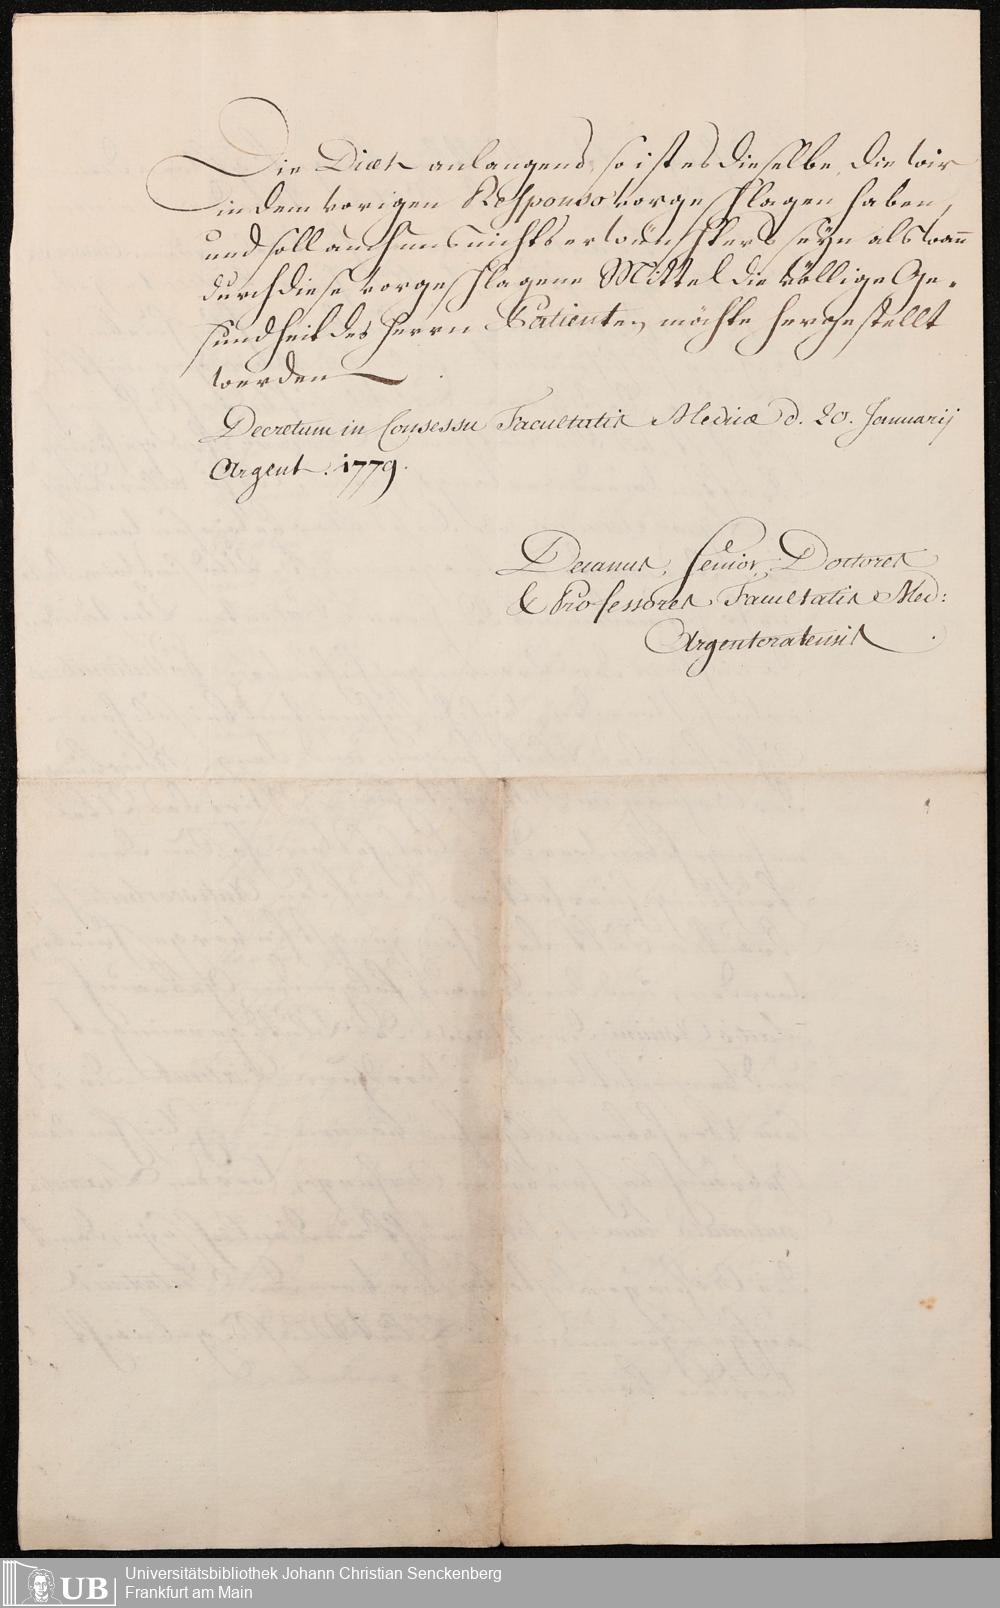 Die Diæt anlangend, so ist es dieselbe, die wir
in dem vorigen Responso vorgeschlagen haben,
und soll auch uns nichts erwünschters seyn als wañ
durch diese vorgeschlagene Mittel die völlige Ge-
sundheit des Herrn Patienten möchte hergestellt
werden
Decretum in Consessu Facultatis Medicæ d. 20. Januarij
Argent. 1779.
Decanus, Senior, Doctores
& Professores Facultatis Med:
Argentoratensis
UB
Universitätsbibliothek Johann Christian Senckenberg
Frankfurt am Main